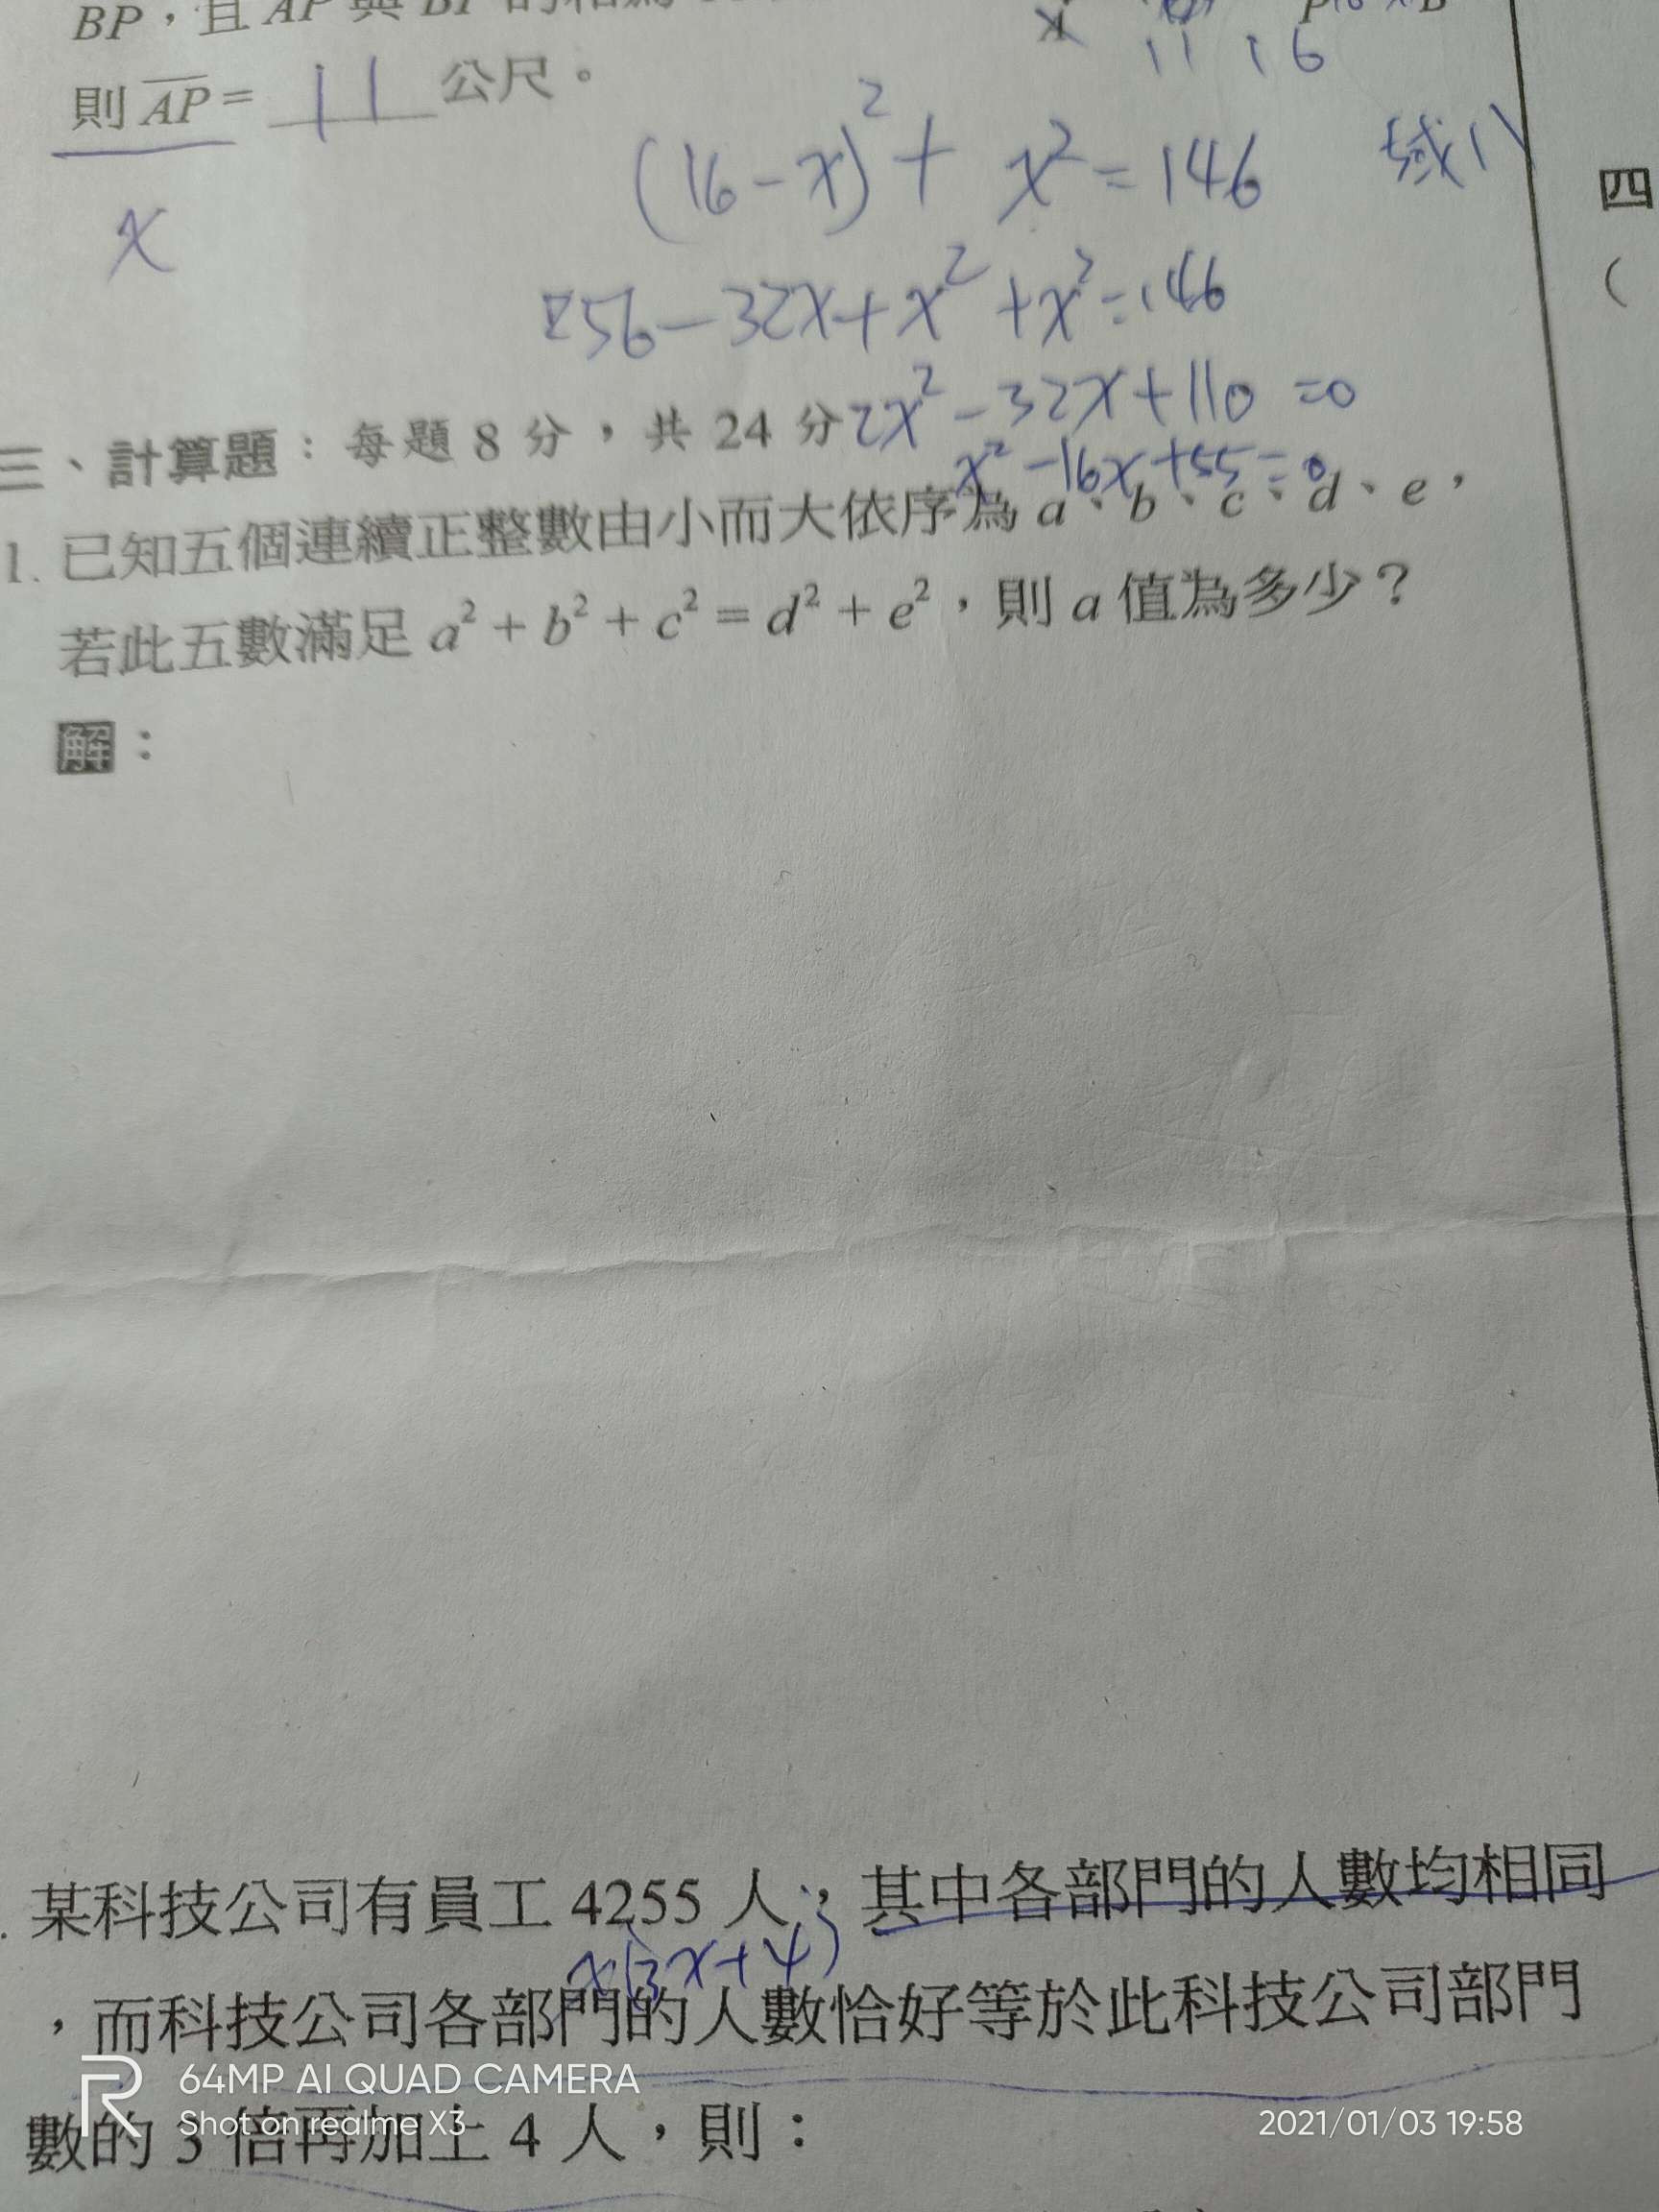 BP，且 AP 與 BP
則 AP = 11 公尺。
x
11 16
(16-x)² + x² = 146
256-32x+x²+x²=146
2x²-32x+110=0
x²-16x+55=0
四
(
三、計算題：每題 8 分，共 24 分
1. 已知五個連續正整數由小而大依序為 a、b、c、d、e，
若此五數滿足 a² + b² + c² = d² + e²，則 a 值為多少？
解：
. 某科技公司有員工 4255 人，其中各部門的人數均相同
x(3x+4)
，而科技公司各部門的人數恰好等於此科技公司部門
數的 3 倍再加上 4 人，則：
R
64MP AI QUAD CAMERA
Shot on realme X3
2021/01/03 19:58